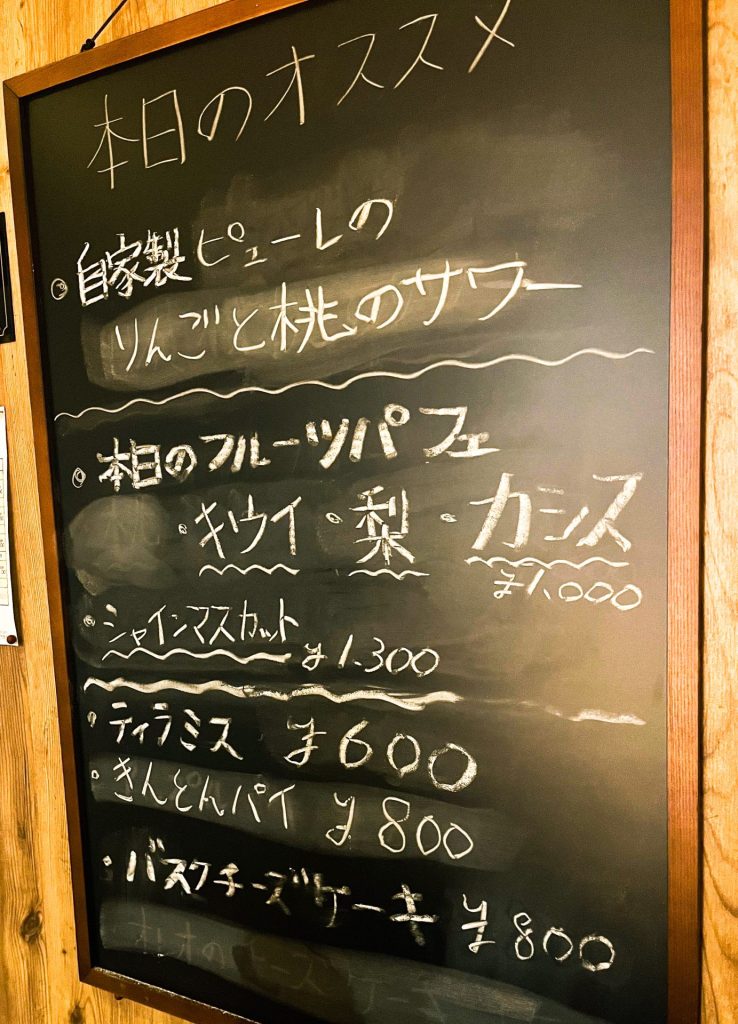 本日のオススメ
・自家製ピューレの
りんごと桃のサワー
・本日のフルーツパフェ
・キウイ・梨・カシス
¥1,000
・シャインマスカット ¥1,300
・ティラミス ¥600
・きんとんパイ ¥800
・バスクチーズケーキ ¥800